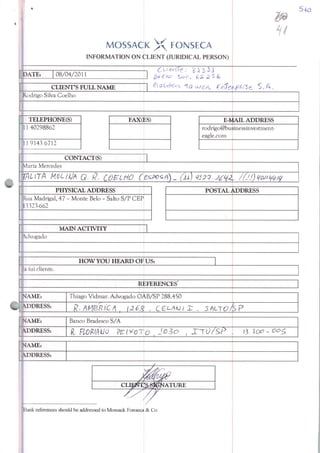 540
41
MOSSACK FONSECA
INFORMATION ON CLIENT (JURIDICAL PERSON)
DATE: 08/04/2011
CLIENT'S FULL NAME
Rodrigo Silva Coelho
TELEPHONE(S) FAX(ES) E-MAIL ADDRESS
11 40298862
11 9143 6712
eagle.com
CONTACT(S)
Maria Mercedes
PHYSICAL ADDRESS POSTAL ADDRESS
Rua Madrigal, 47 – Monte Belo – Salto S/P CEP
13323-662
MAIN ACTIVITY
Advogado
HOW YOU HEARD OF US:
já fui cliente.
REFERENCES
NAME: Thiago Vidmar. Advogado OAB/SP 288.450
ADDRESS: R. AMÉRICA, 1268. CELANI I. SALTO/SP
NAME: Banco Bradesco S/A
ADDRESS: R. FLORIANO PEIXOTO, 1030, ITU/SP. 13 300-005
NAME:
ADDRESS:
CLIENT'S SIGNATURE
Bank references should be addressed to Mossack Fonseca & Co